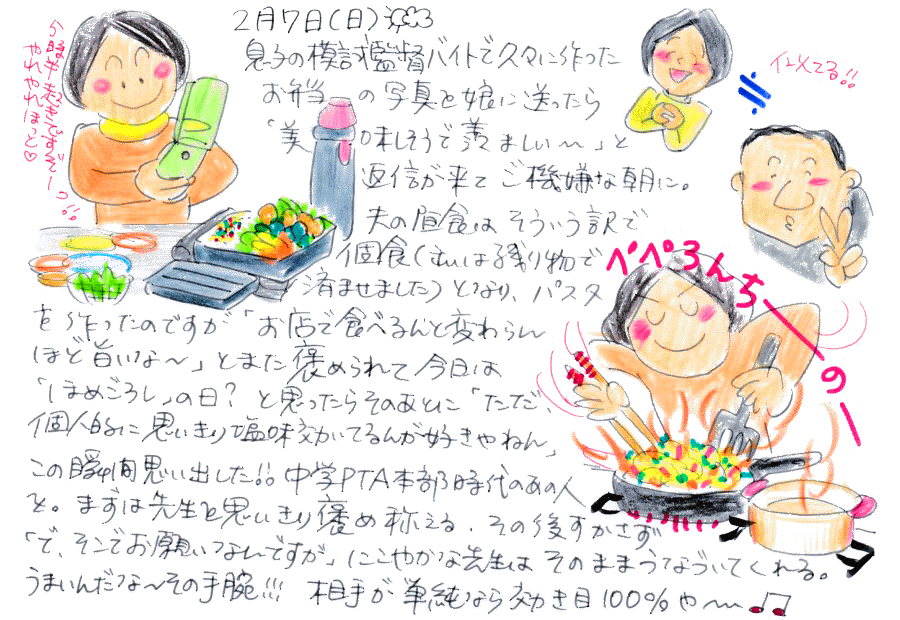 2月7日(日)
息子の模試監督バイトで久々に作った
お弁当の写真を娘に送ったら
「美味しそうで羨ましい〜」と
返信が来てご機嫌な朝に。
夫の昼食はそういう訳で
個食(私は残り物で
済ませました)となり、パスタ
を作ったのですが「お店で食べるんと変わらん
ほど旨いよ〜」とまた褒められて今日は
「ほめごろし」の日?と思ったらそのあとに「ただ、
個人的に思いきり塩味効いてるんが好きやねん」
この瞬間思い出した!!中学PTA本部時代のあの人
を。まずは先生を思いきり褒め称える、その後すかさず
「で、そこでお願いなんですが」にこやかな先生はそのままうなづいてくれる。
うまいんだな〜その手腕!!! 相手が単純なら効き目100%や〜♫
やれやれほっと♡
≒
イメてる!!
ペペろんちーのー